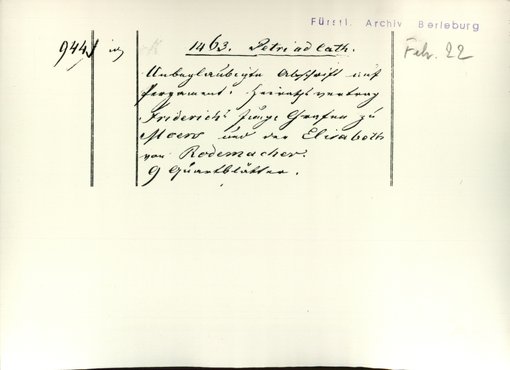 Fürstl. Archiv Berleburg
944
1463. Petri ad cath.
Febr. 22
Unbeglaubigte Abschrift auf
Pergament: Heirathsvertrag
Friederichs junge Grafen zu
Moers und der Elisabeth
von Rodemacher.
9 Quartblätter.